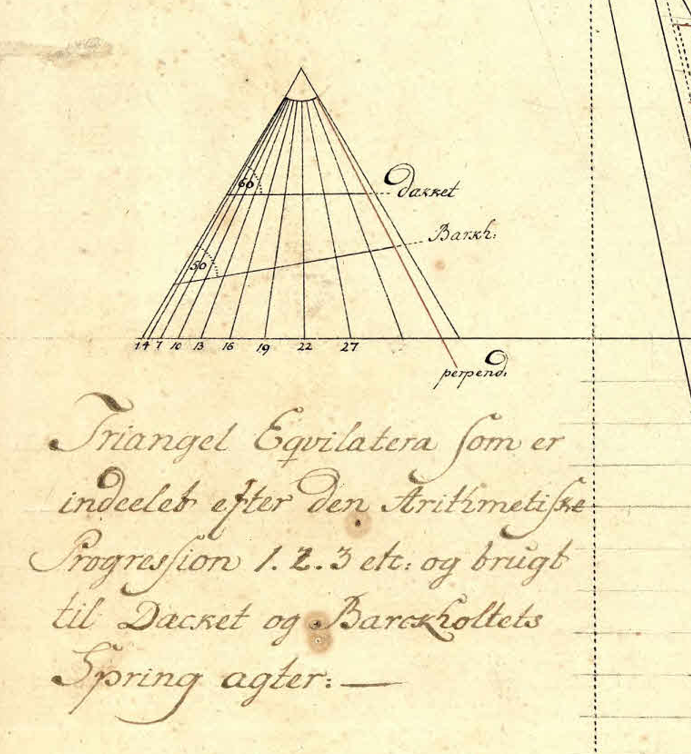 60
Dæcket
Barkh:
50
1 4 7 10 13 16 19 22 27
perpend:
Triangel Eqvilatera som er
indeelet efter den Arithmetiske
Progression 1. 2. 3 etc: og brugt
til Dæcket og Barckholtets
Spring agter: —